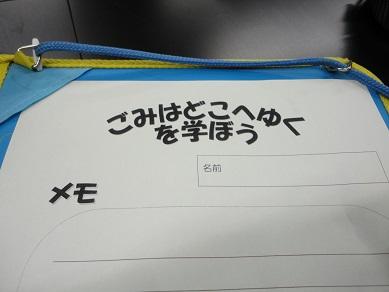 ごみはどこへゆく
を学ぼう
名前
メモ